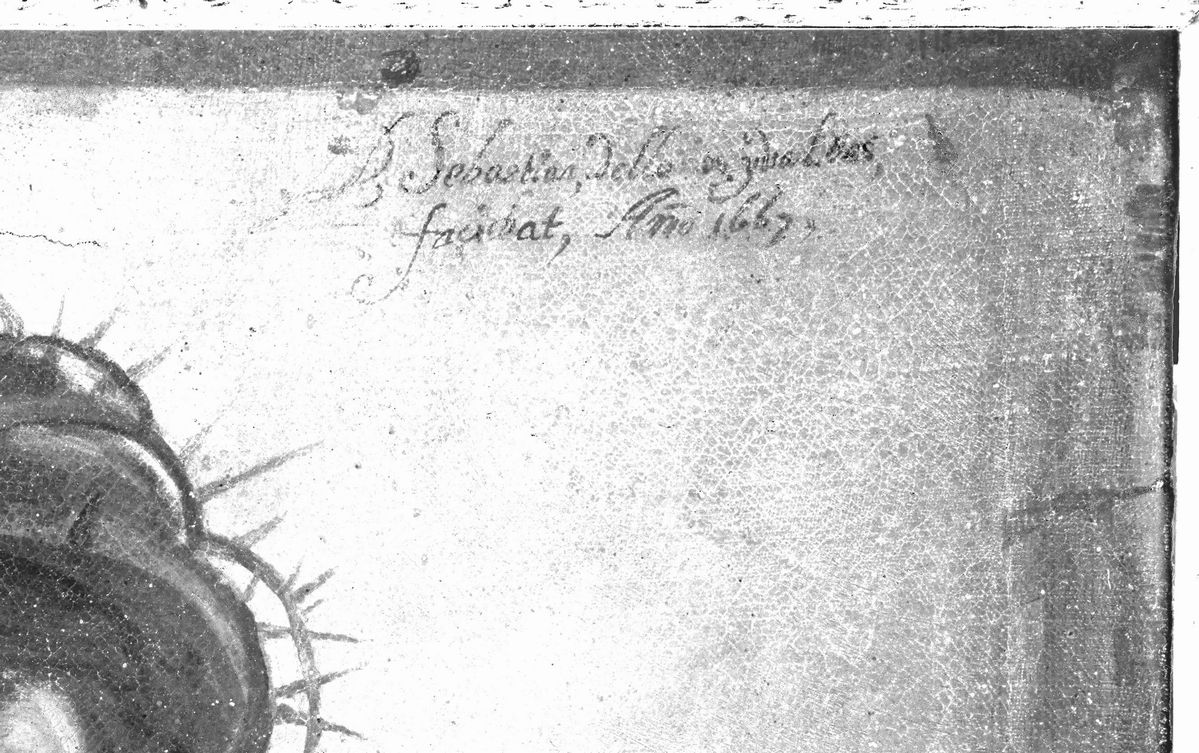 D, Sebastian, dello
faciebat, Año 1667,